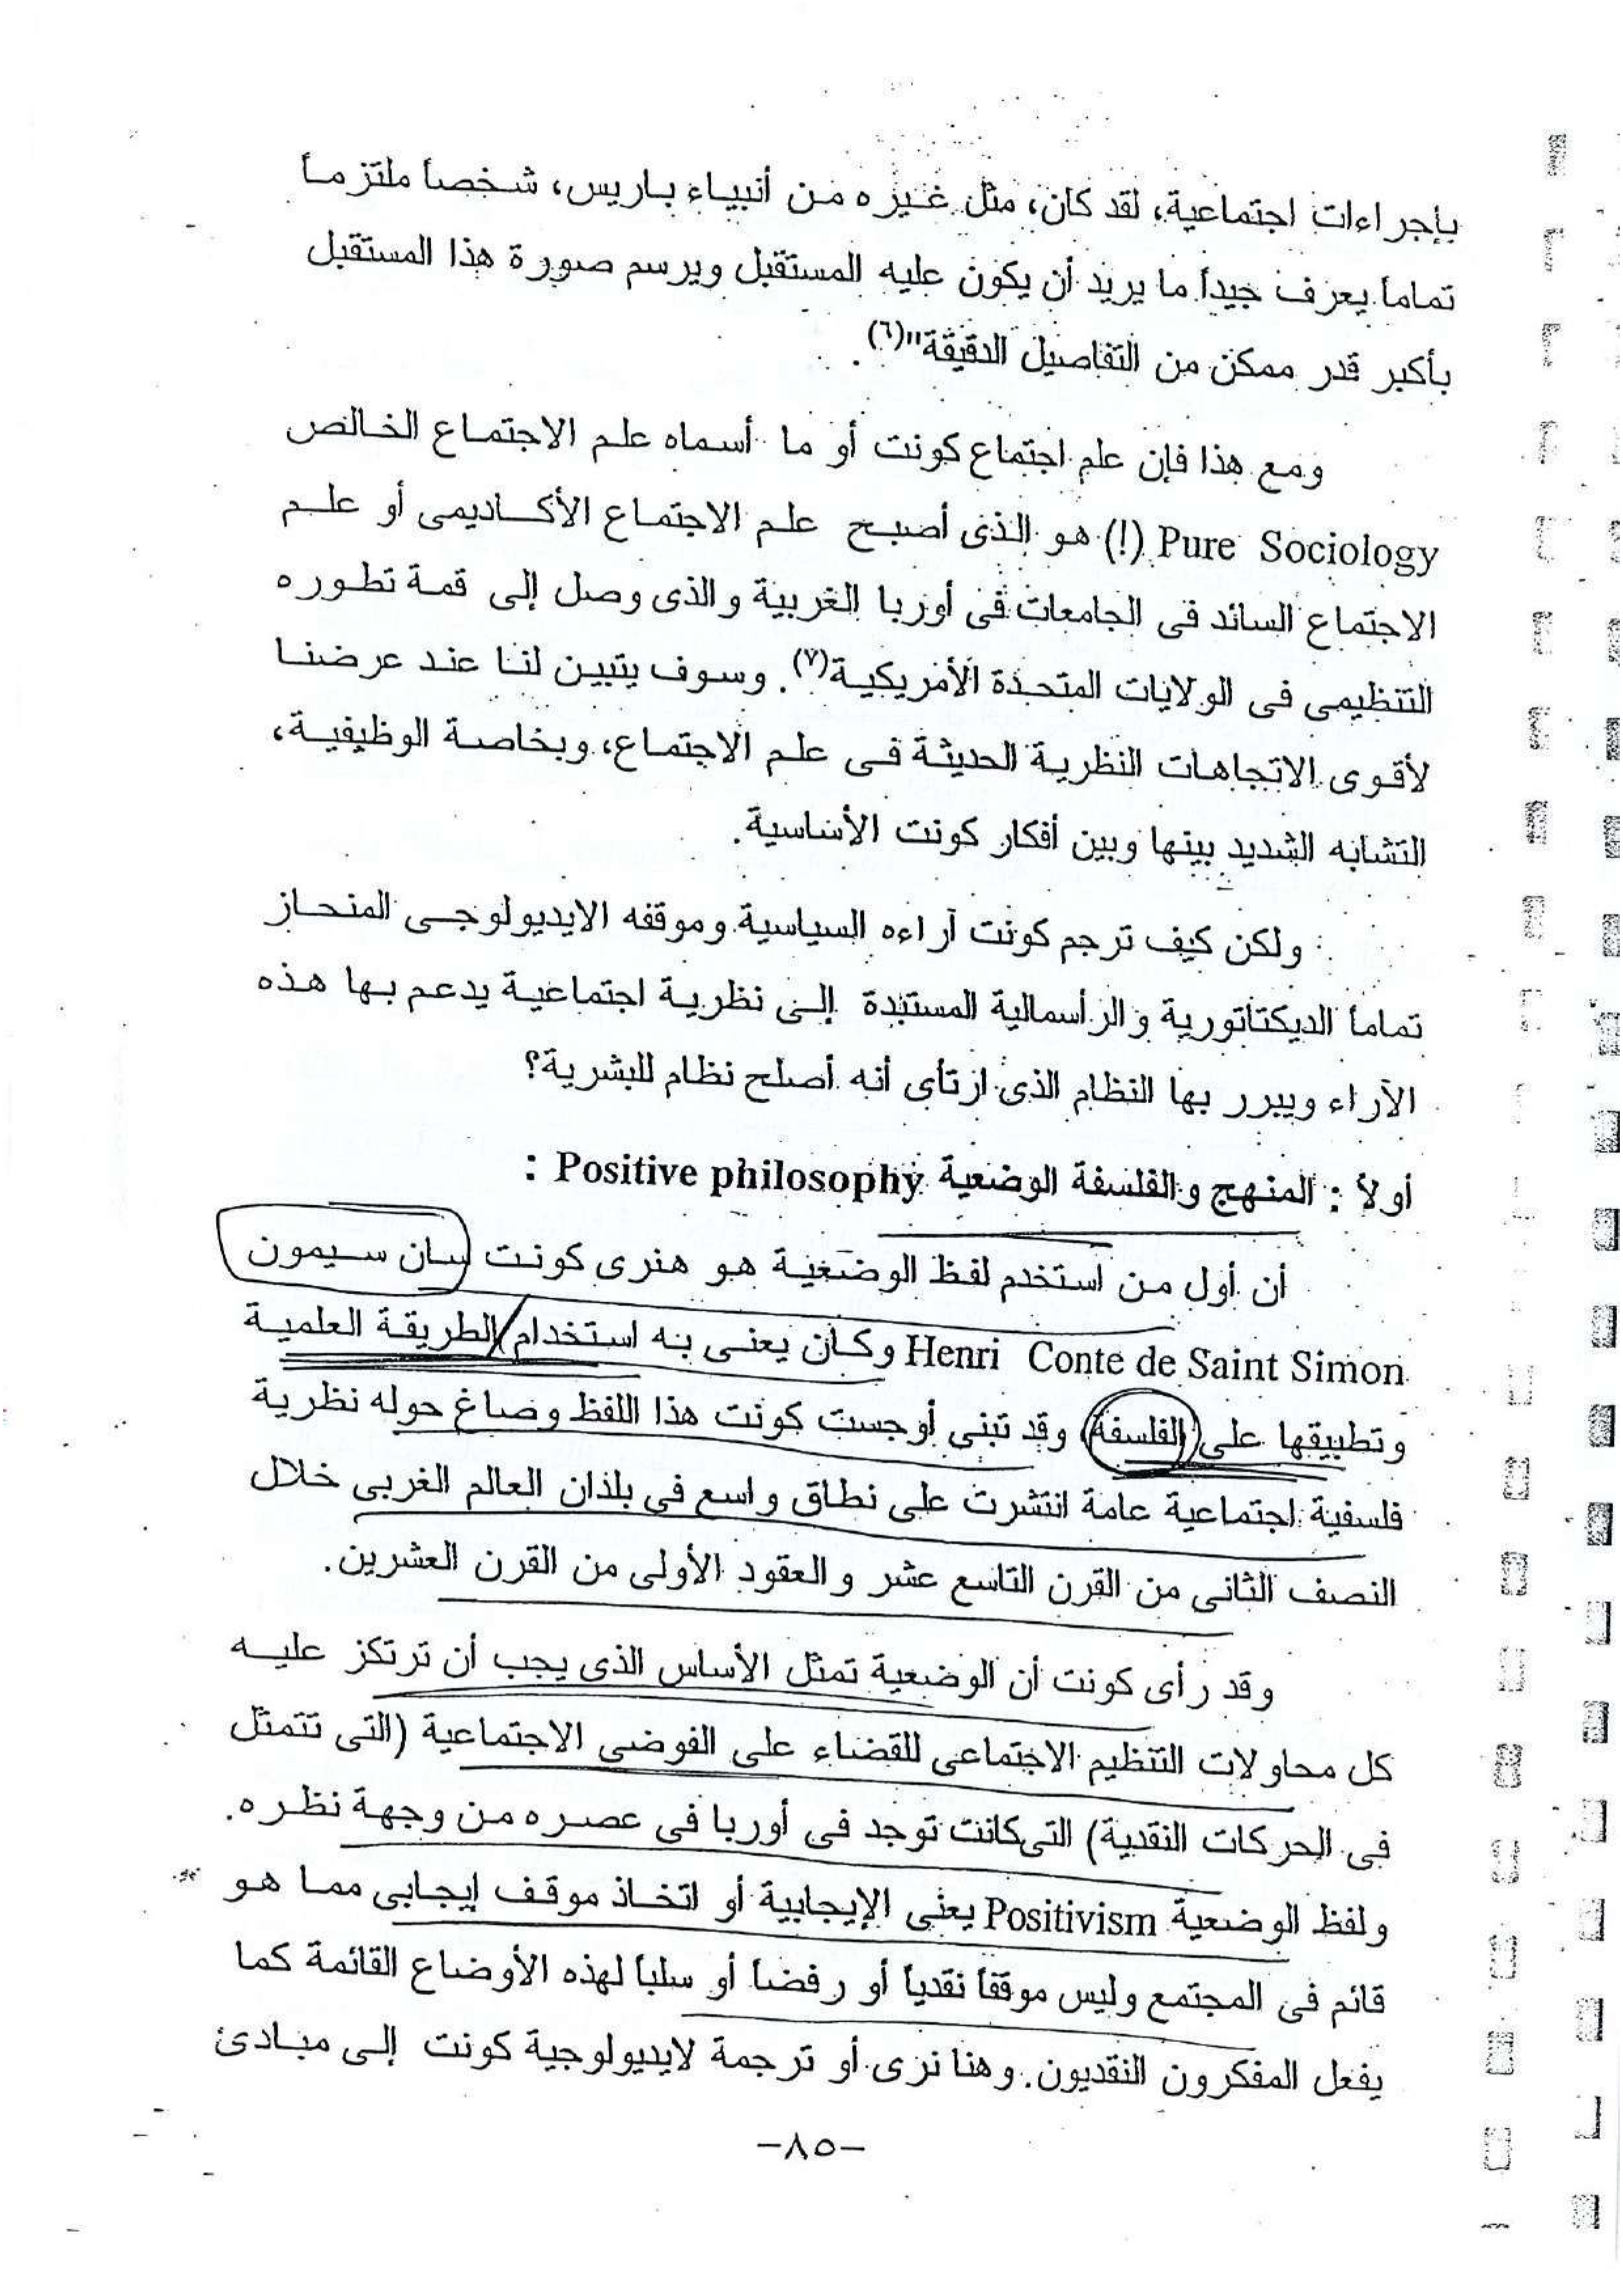 بإجراءات اجتماعية، لقد كان، مثل غيره من أنبياء باريس، شخصاً ملتزماً
تماماً يعرف جيداً ما يريد أن يكون عليه المستقبل ويرسم صورة هذا المستقبل
بأكبر قدر ممكن من التفاصيل الدقيقة"(٦).
ومع هذا فإن علم اجتماع كونت أو ما أسماه علم الاجتماع الخالص
Pure Sociology (!) هو الذى أصبح علم الاجتماع الأكاديمى أو علم
الاجتماع السائد فى الجامعات فى أوربا الغربية والذى وصل إلى قمة تطوره
التنظيمى فى الولايات المتحدة الأمريكية(٧). وسوف يتبين لنا عند عرضنا
لأقوى الاتجاهات النظرية الحديثة فى علم الاجتماع، وبخاصة الوظيفية،
التشابه الشديد بينها وبين أفكار كونت الأساسية.
ولكن كيف ترجم كونت آراءه السياسية وموقفه الايديولوجى المنحاز
تماماً الديكتاتورية والرأسمالية المستبدة إلى نظرية اجتماعية يدعم بها هذه
الآراء ويبرر بها النظام الذى ارتأى أنه أصلح نظام للبشرية؟
أولاً : المنهج والفلسفة الوضعية Positive philosophy :
أن أول من استخدم لفظ الوضعية هو هنرى كونت سان سيمون
Henri Conte de Saint Simon وكان يعنى به استخدام الطريقة العلمية
وتطبيقها على الفلسفة، وقد تبنى أوجست كونت هذا اللفظ وصاغ حوله نظرية
فلسفية اجتماعية عامة انتشرت على نطاق واسع فى بلدان العالم الغربى خلال
النصف الثانى من القرن التاسع عشر والعقود الأولى من القرن العشرين.
وقد رأى كونت أن الوضعية تمثل الأساس الذى يجب أن ترتكز عليه
كل محاولات التنظيم الاجتماعى للقضاء على الفوضى الاجتماعية (التى تتمثل
فى الحركات النقدية) التى كانت توجد فى أوربا فى عصره من وجهة نظره.
ولفظ الوضعية Positivism يعنى الإيجابية أو اتخاذ موقف إيجابى مما هو
قائم فى المجتمع وليس موقفاً نقدياً أو رفضاً أو سلباً لهذه الأوضاع القائمة كما
يفعل المفكرون النقديون. وهنا نرى أو ترجمة لايديولوجية كونت إلى مبادئ
-٨٥-